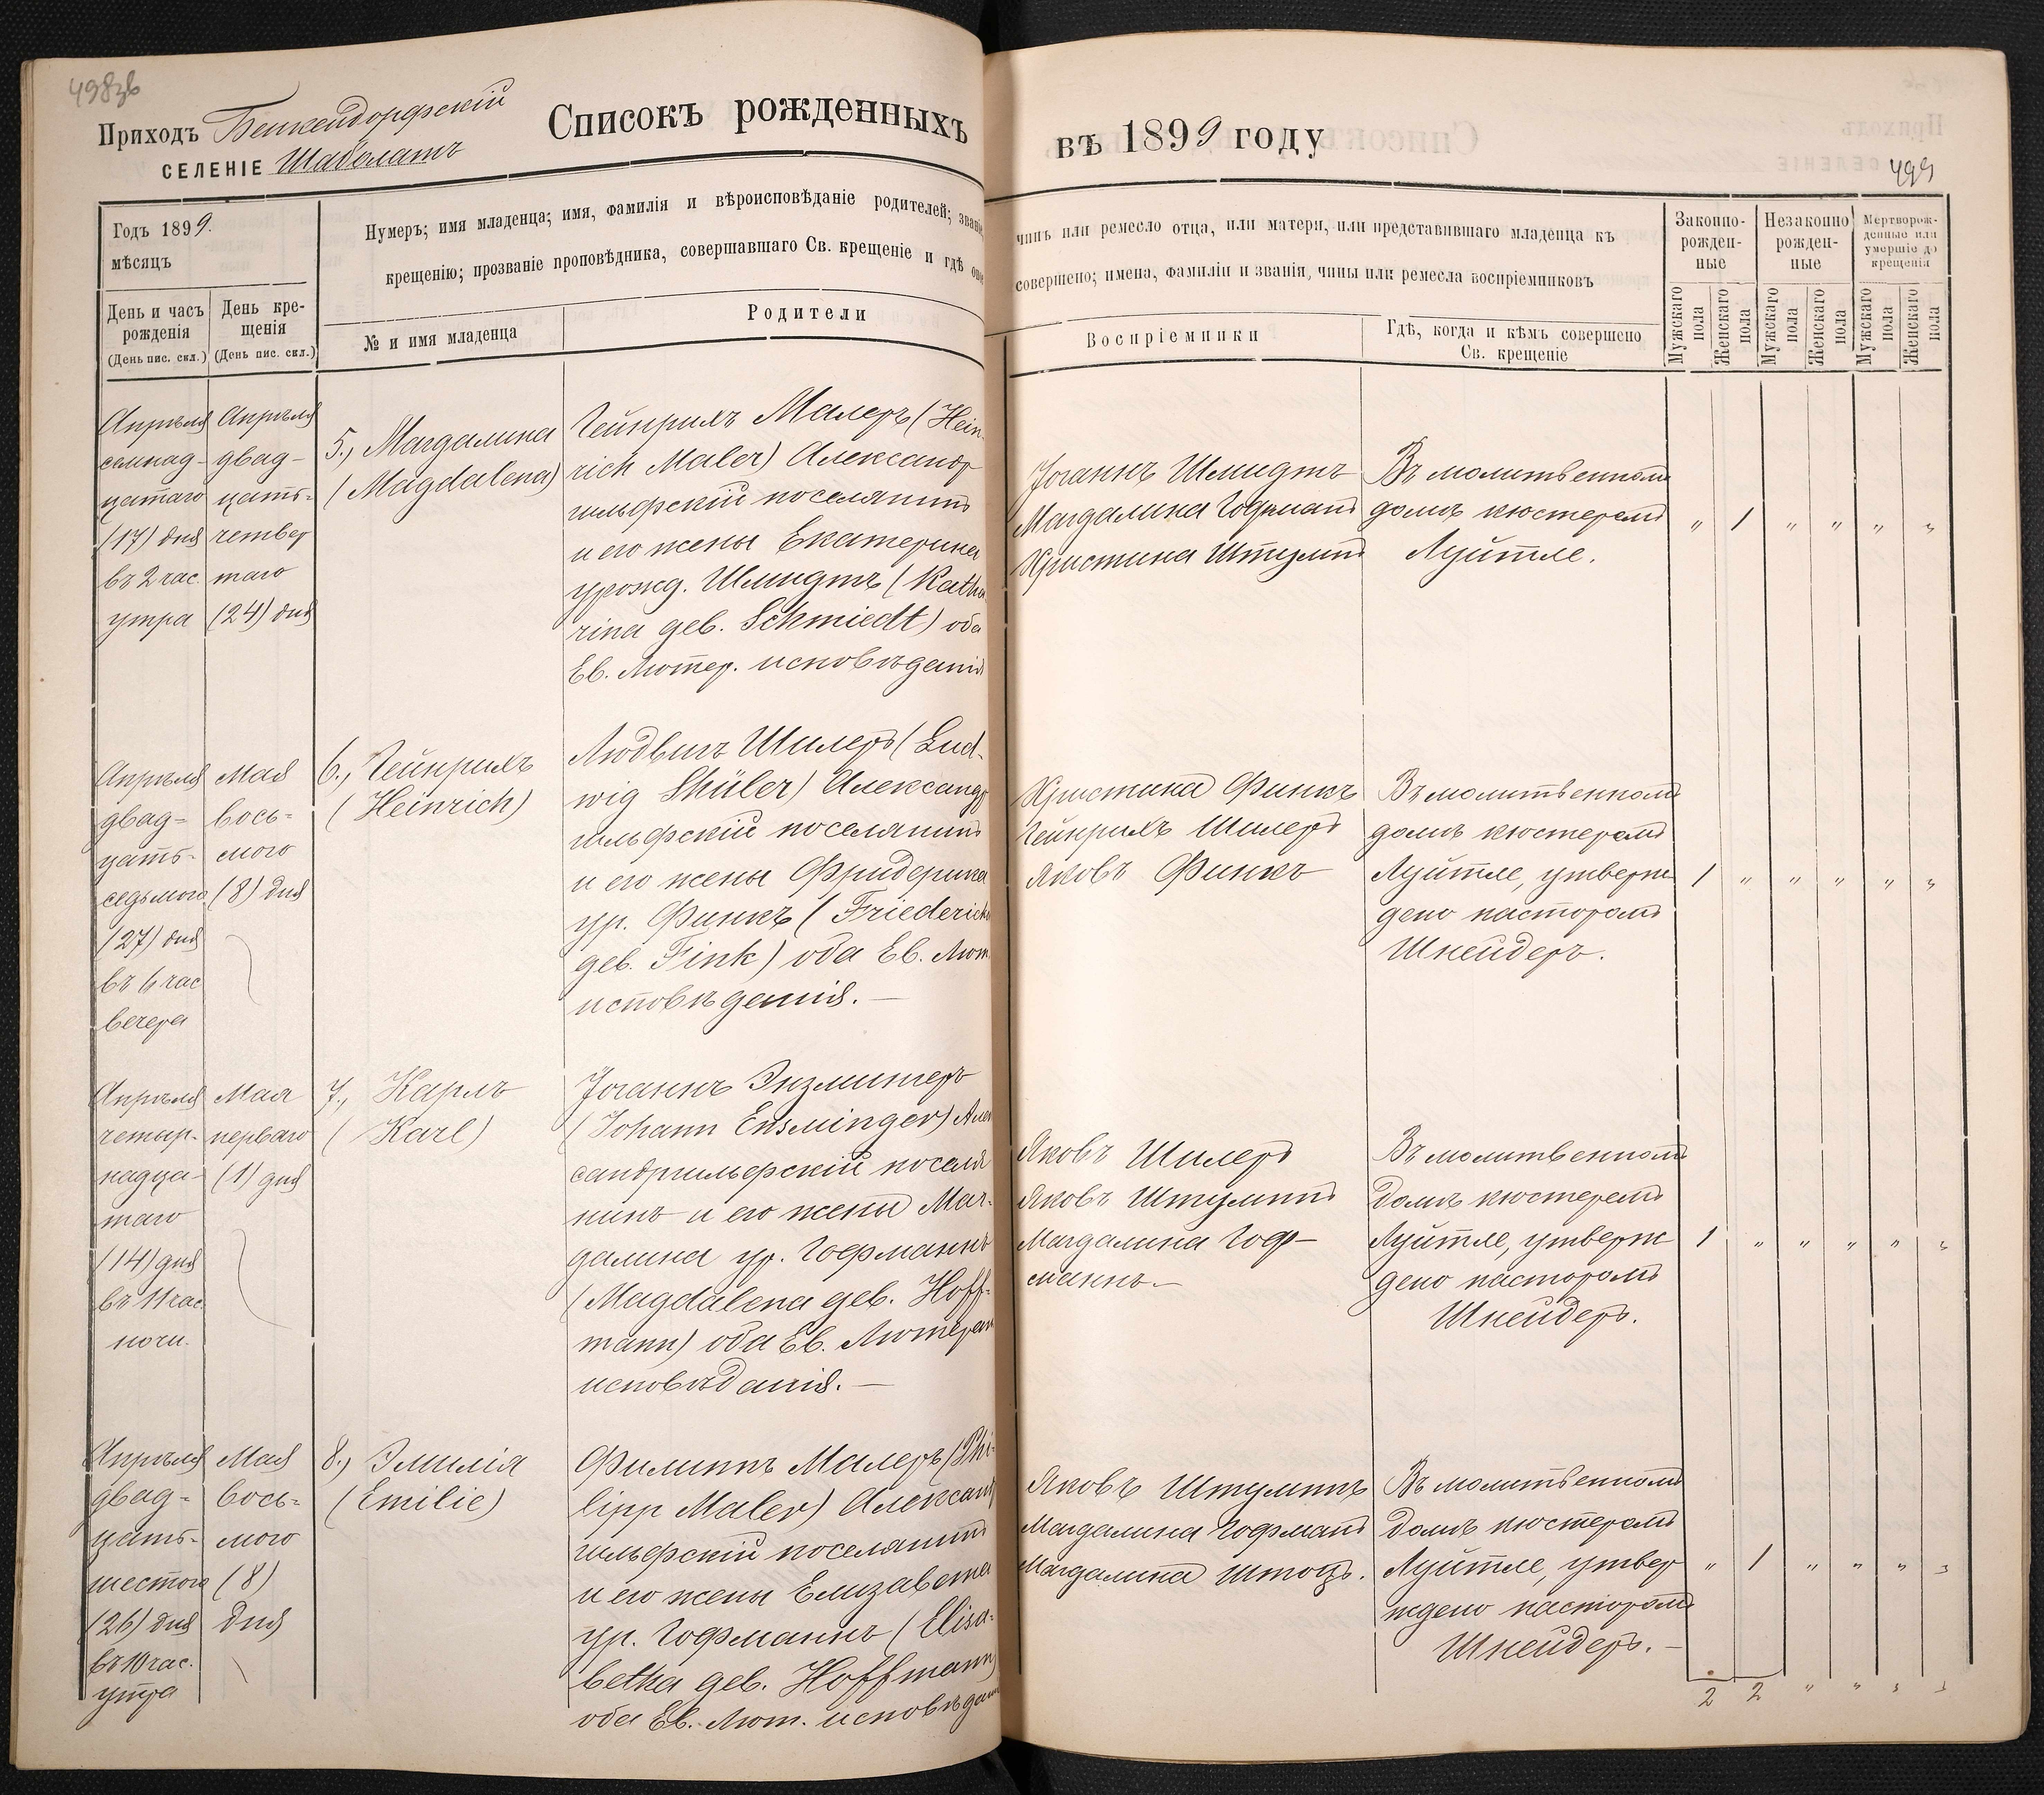 498зв
Приходъ Бенкендорфскій
СЕЛЕНІЕ Шаболатъ
Списокъ рожденныхъ
въ 1899 году
499
Годъ 1899.
мѣсяцъ
День и часъ рожденія
(День пис. скл.)
День кре-
щенія
(День пис. скл.)
Нумеръ; имя младенца; имя, фамилія и вѣроисповѣданіе родителей; званіе,
крещенію; прозваніе проповѣдника, совершавшаго Св. крещеніе и гдѣ оное
№ и имя младенца
Родители
чинъ или ремесло отца, или матери, или представившаго младенца къ
совершено; имена, фамиліи и званія, чины или ремесла воспріемниковъ
Воспріемники
Гдѣ, когда и кѣмъ совершено
Св. крещеніе
Законно-
рожден-
ные
Незаконно
рожден-
ные
Мертворож-
денные или
умершіе до
крещенія
Мужскаго пола
Женскаго пола
Мужскаго пола
Женскаго пола
Мужскаго пола
Женскаго пола
Апрѣля
семнад-
цатаго
(17) дня
въ 2 час.
утра
Апрѣля
двад-
цать-
четвер
таго
(24) дня
5., Магдалина
(Magdalena)
Гейнрихъ Малеръ (Hein-
rich Maler) Александр
гильфскій поселянинъ
и его жены Екатерина
урожд. Шмидтъ (Katha
rina geb. Schmiedt) оба
Ев. Лютер. исповѣданія
Іоганнъ Шмидтъ
Магдалина Гофманъ
Христина Штумпъ
Въ молитвенномъ
домѣ кюстеромъ
Луйтле.
" 1 " " " "
Апрѣля
двад-
цать-
седьмого
(27) дня
въ 6 час
вечера
Мая
вось-
мого
(8) дня
6., Гейнрихъ
(Heinrich)
Людвигъ Шилеръ (Lud-
wig Shüler) Александр
гильфскій поселянинъ
и его жены Фридерика
ур. Финкъ (Friederich
geb. Fink) оба Ев. Лют.
исповѣданія. —
Христина Финкъ
Гейнрихъ Шилеръ
Яковъ Финкъ
Въ молитвенномъ
домѣ кюстеромъ
Луйтле, утверж
дено пасторомъ
Шнейдеръ.
1 " " " " "
Апрѣля
четыр-
надца-
таго
(14) дня
въ 11 час.
ночи.
Мая
перваго
(1) дня
7., Карлъ
(Karl)
Іоганнъ Энзмингеръ
(Johann Ensminger) Алек
сандргильфскій поселя
нинъ и его жены Маг-
далина ур. Гофманнъ
(Magdalena geb. Hoff-
mann) оба Ев. Лютеран
исповѣданія. —
Яковъ Шилеръ
Яковъ Штумпъ
Магдалина Гоф-
маннъ. —
Въ молитвенномъ
домѣ кюстеромъ
Луйтле, утверж
дено пасторомъ
Шнейдеръ.
1 " " " " "
Апрѣля
двад-
цать-
шестого
(26) дня
въ 10 час.
утра
Мая
вось-
мого
(8)
дня
8., Эмилія
(Emilie)
Филиппъ Малеръ (Phi-
lipp Maler) Александр
гильфскій поселянинъ
и его жены Елизавета
ур. Гофманнъ (Elisa-
betha geb. Hoffmann)
оба Ев. Лют. исповѣдан
Яковъ Штумпъ
Магдалина Гофманъ
Магдалина Штоцъ.
Въ молитвенномъ
домѣ кюстеромъ
Луйтле, утвер
ждено пасторомъ
Шнейдеръ. —
" 1 " " " "
2 2 " " " "